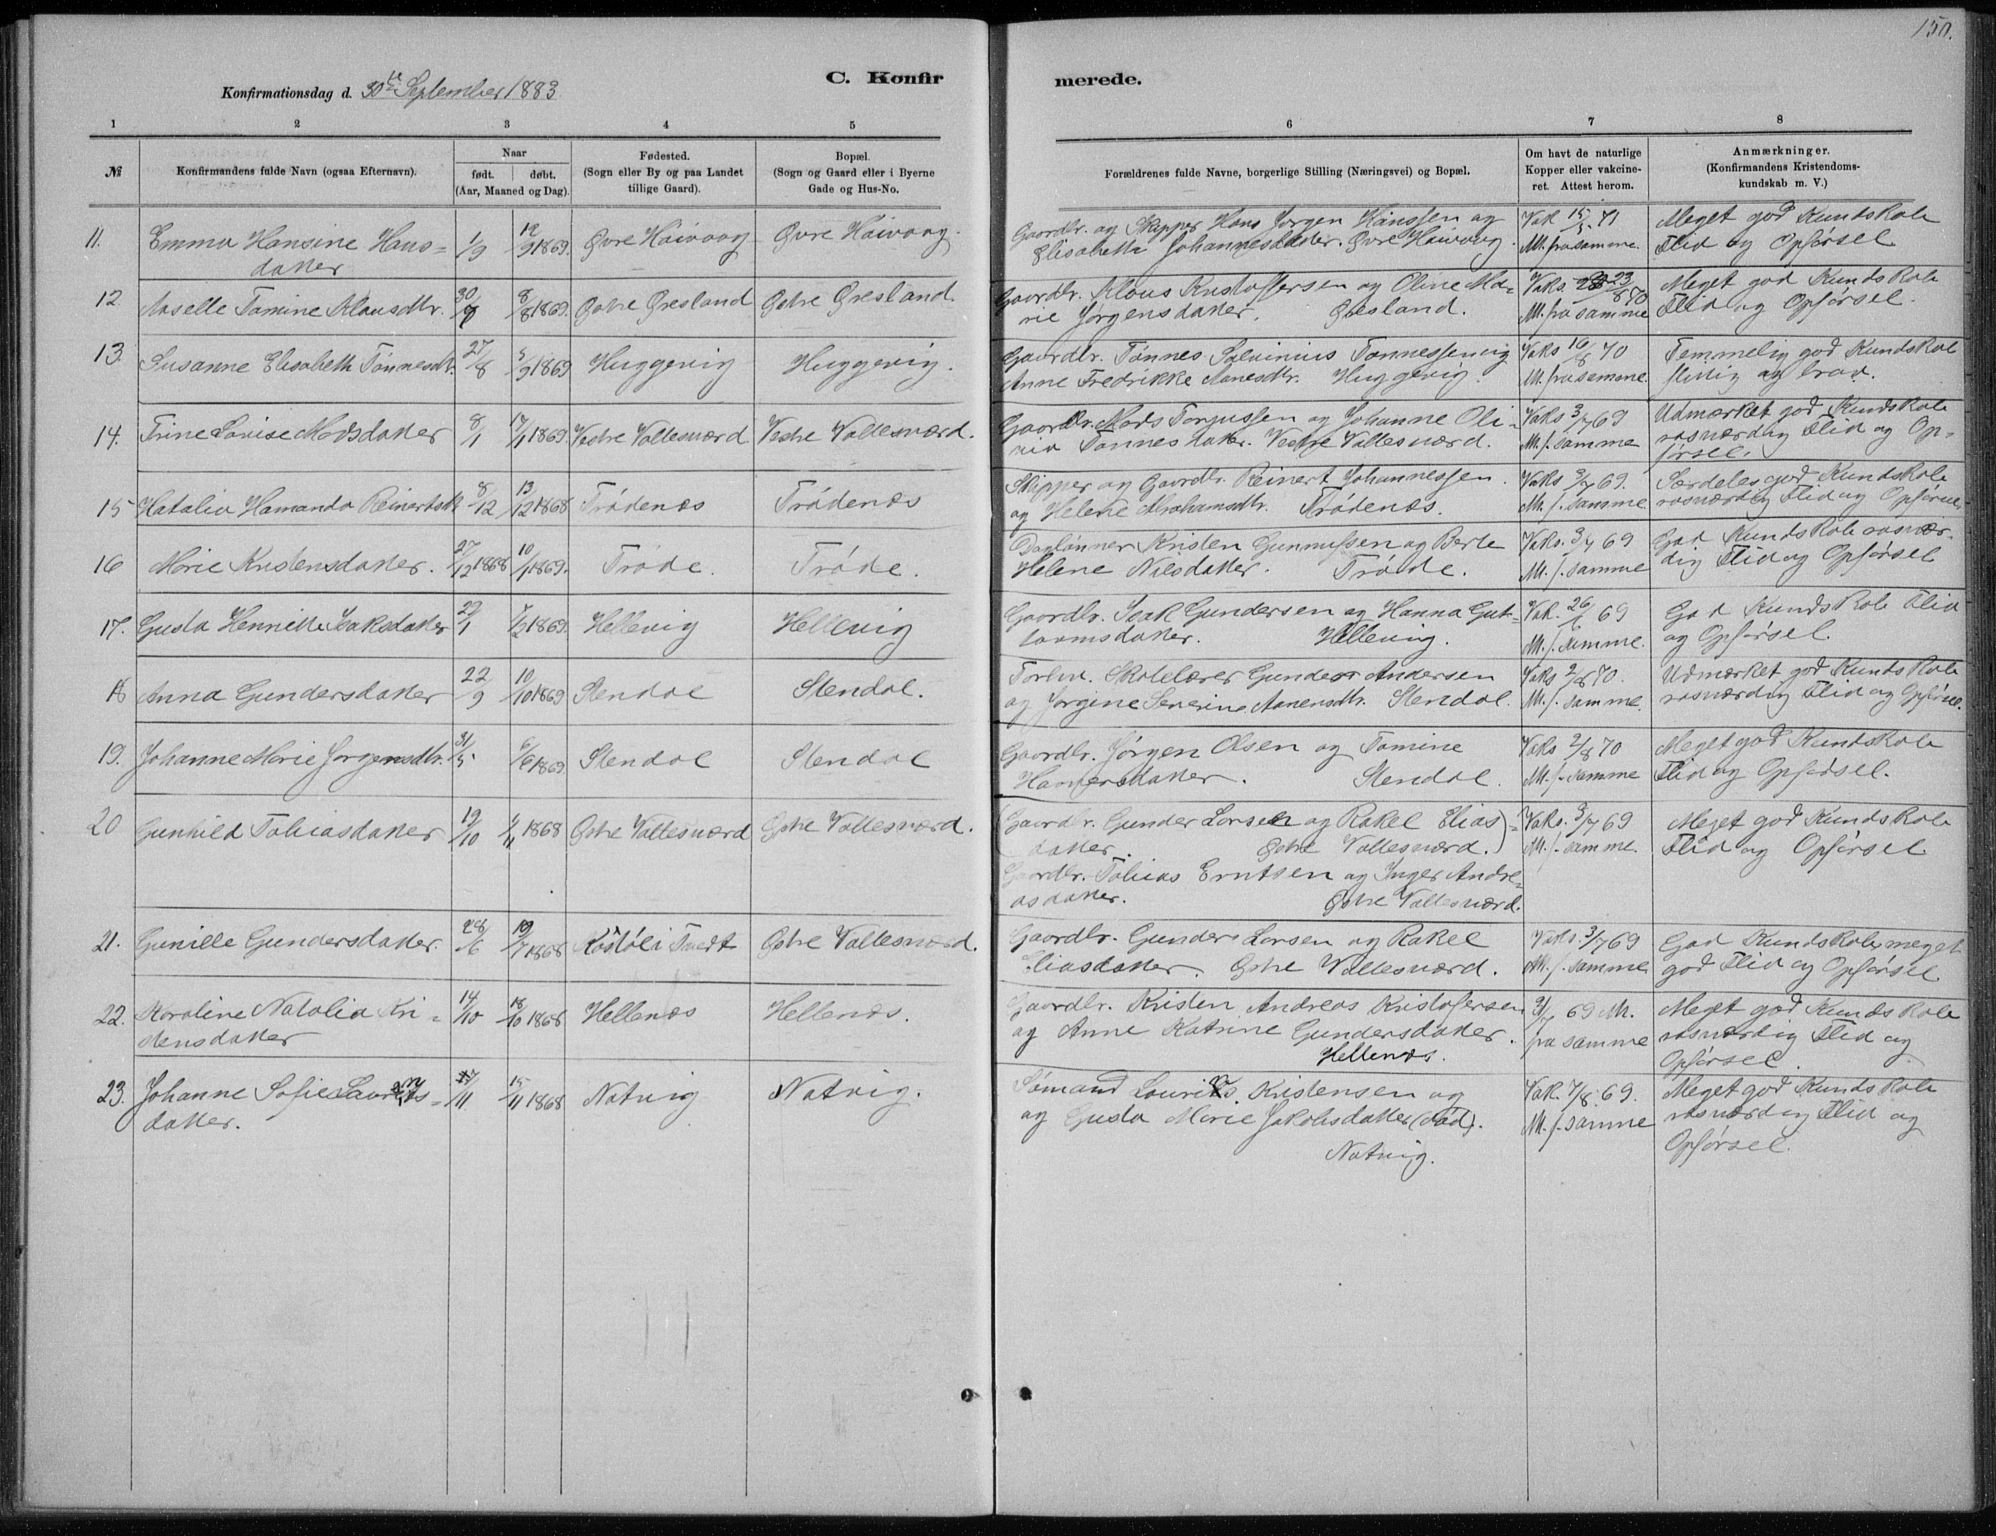 150.
Konfirmationsdag d. 30te September 1883
C. Konfirmerede.
1 2 3 4 5 6 7 8
№
Konfirmandens fulde Navn (ogsaa Efternavn).
Naar
født. døbt.
(Aar, Maaned og Dag).
Fødested.
(Sogn eller By og paa Landet
tillige Gaard).
Bopæl.
(Sogn og Gaard eller i Byerne
Gade og Hus-No.
Forældrenes fulde Navne, borgerlige Stilling (Næringsvei) og Bopæl.
Om havt de naturlige
Kopper eller vakcine-
ret. Attest herom.
Anmærkninger.
(Konfirmandens Kristendoms-
kundskab m. V.)
11. Emma Hansine Hans- 1/9 12/9 1869. Øvre Høivaag Øvre Høivaag. Gaardbr. og Skipper Hans Jørgen Hanssen og Vak 15/5 71 Meget god Kundskab
datter Elisabeth Johannesdatter. Øvre Høivaag. M. fra samme. Flid og Opførsel
12. Aaselle Tomine Klausdtr. 30/7 8/8 1869. Østre Øresland Østre Øresland. Gaardbr. Klaus Kristoffersen og Oline Ma- Vaks. 23/8 70 Meget god Kundskab
rie Jørgensdatter. Øresland. M. fra samme Flid og Opførsel.
13. Susanne Elisabeth Tønnesdtr. 27/8 5/9 1869 Huggevig Huggevig. Gaardbr. Tønnes Salvinius Tønnessen og Vaks 16/8 70 Temmelig god Kundskab
Anne Fredrikke Aanesdtr. Huggevig. M. fra samme. flittig og brav.
14. Trine Lovise Madsdatter 8/1 17/1 1869. Vestre Vallesværd Vestre Vallesværd. Gaardbr. Mads Torgussen og Johanne Oli- Vaks 3/7 69 Udmærket god Kundskab
via Tønnesdatter. Vestre Vallesværd. M. f. samme rosværdig Flid og Op-
førsel.
15 Natalia Hamanda Reinertsdtr 8/12 13/12 1868 Trødenæs Trødenæs Skipper og Gaardbr. Reinert Johannessen Vaks 3/7 69. Særdeles god Kundskab
og Helene Abrahamsdtr. Trødenæs. M. f. samme rosværdig Flid og Opførsel
16 Marie Kristensdatter. 27/12 1868 10/1 1869. Trøde. Trøde. Daglønner Kristen Gunnufsen og Berte Vaks. 3/7 69 God Kundskab rosvær-
Helene Nilsdatter. Trøde. M. f. samme dig Flid og Opførsel
17. Gusta Henriette Isaksdatter 29/1 7/2 1869. Hellevig Hellevig Gaardbr. Isak Gundersen og Hanna Gut- Vak. 26/6 69 God Kundskab Flid
tormsdatter. Hellevig. M. f. samme. og Opførsel.
18 Anna Gundersdatter 22/9 10/10 1869 Stendal Stendal. Forhv. Skolelærer Gunder Andersen Vaks 2/8 70. Udmærket god Kundskab
og Jørgine Severine Aanensdtr. Stendal. M. f. samme. rosværdig Flid og Opførsel.
19. Johanne Marie Jørgensdtr. 31/5 6/6 1869 Stendal Stendal Gaardbr. Jørgen Olsen og Tomine Vaks 2/8 70 Meget god Kundskab
datter. Stendal. M. f. samme Flid og Opførsel.
20 Gunhild Tobiasdatter 19/10 1/11 1868 Østre Vallesværd Østre Vallesværd. (Gaardbr. Gunder Larsen og Rakel Elias- Vaks. 3/7 69 Meget god Kundskab
datter. Østre Vallesværd.) M. f. samme. Flid og Opførsel
Gaardbr. Tobias Erntsen og Inger Andre-
asdatter. Østre Vallesværd.
21. Gunille Gundersdatter. 28/6 19/7 1868 Kostøl i Tvedt Østre Vallesværd. Gaardbr. Gunder Larsen og Rakel Vaks. 3/7 69 God Kundskab meget
Eliasdatter. Østre Vallesværd. M. f. samme god Flid og Opførsel
22. Karoline Natalia Kri- 14/10 18/10 1868 Hellenæs Hellenæs. Gaardbr. Kristen Andreas Kristofersen 3/7 69 M. Meget god Kundskab
stensdatter og Anne Katrine Gundersdatter. fra samme rosværdig Flid og
Hellenæs. Opførsel.
23. Johanne Sofie Laurits- 7/11 15/11 1868 Natvig Natvig. Sømand Laurits Kristensen og Vak. 7/8. 69. Meget god Kundskab
datter. og Gusta Marie Jakobsdatter (død). M. f. samme rosværdig Flid og
Natvig. Opførsel.